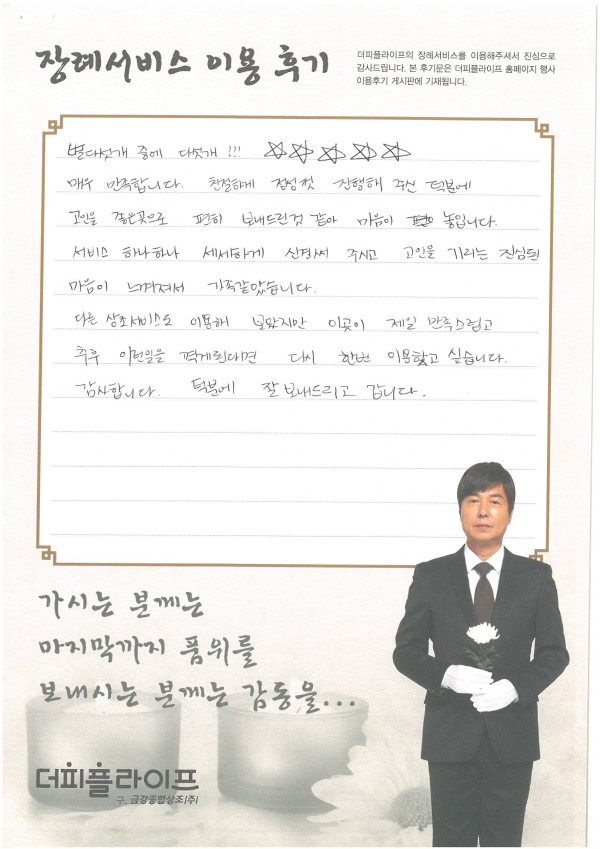 장례서비스 이용 후기
더피플라이프의 장례서비스를 이용해주셔서 진심으로
감사드립니다. 본 후기문은 더피플라이프 홈페이지 행사
이용후기 게시판에 기재됩니다.
별다섯개 중에 다섯개 !!! ☆☆☆☆☆
매우 만족합니다. 친절하게 정성껏 진행해 주신 덕분에
고인을 좋은곳으로 편히 보내드린것 같아 마음이 놓입니다.
서비스 하나하나 세세하게 신경써 주시고 고인을 기리는 진심된
마음이 느껴져서 가족같았습니다.
다른 상조서비스도 이용해 보았지만 이곳이 제일 만족스럽고
추후 이런일을 겪게된다면 다시 한번 이용하고 싶습니다.
감사합니다. 덕분에 잘 보내드리고 갑니다.
가시는 분께는
마지막까지 품위를
보내시는 분께는 감동을...
더피플라이프
구. 금강종합상조(주)